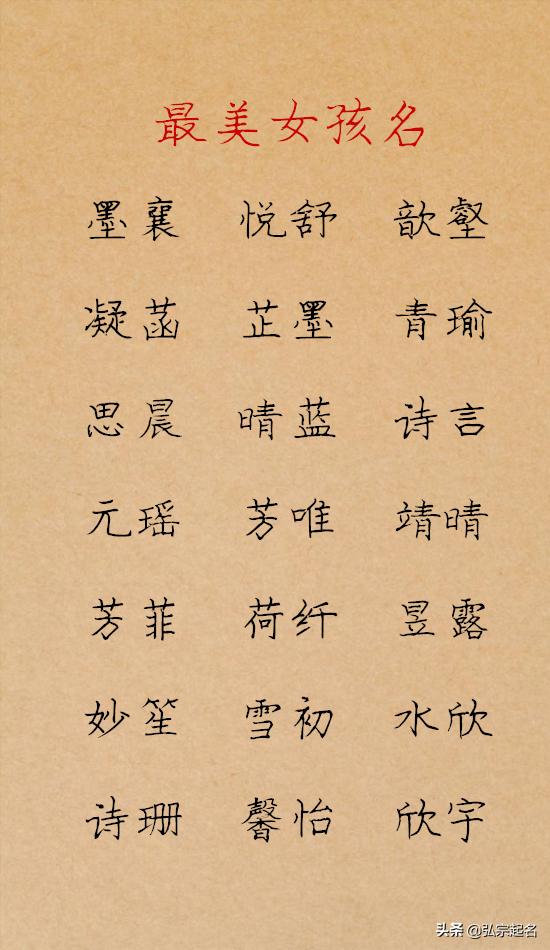 最美女孩名
墨襄 悦舒 歆壑
凝菡 芷墨 青瑜
思晨 晴蓝 诗言
元瑶 芳唯 靖晴
芳菲 荷纤 昱露
妙笙 雪初 水欣
诗珊 馨怡 欣宇
头条 @弘宗起名